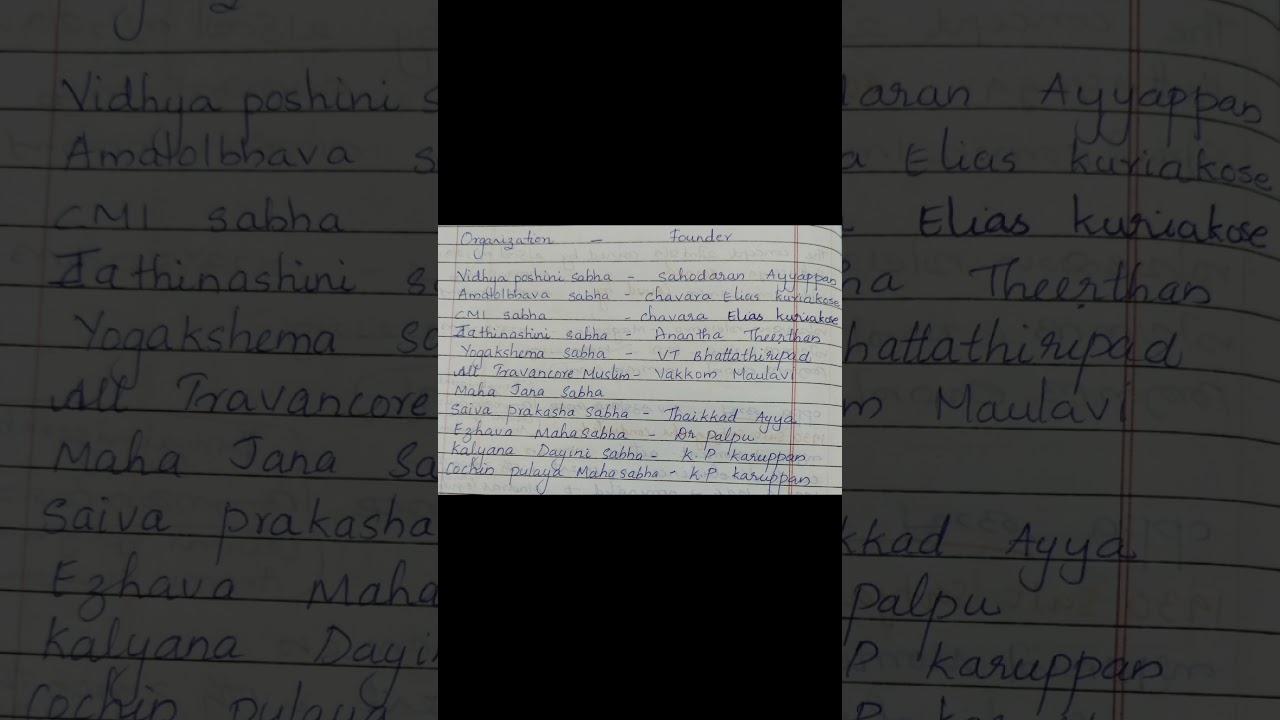 Organization - Founder
Vidhya poshini sabha - sahodaran Ayyappan
Amatolbhava sabha - chavara Elias kuriakose
CMI sabha - chavara Elias kuriakose
Jathinashini sabha - Anantha Theerthan
Yogakshema sabha - VT Bhattathiripad
All Travancore Muslim - Vakkom Maulavi
Maha Jana Sabha
Saiva prakasha sabha - Thaikkad Ayya
Ezhava Mahasabha - Dr palpu
Kalyana Dayini sabha - K.P karuppan
Cochin pulaya Mahasabha - K.P karuppan